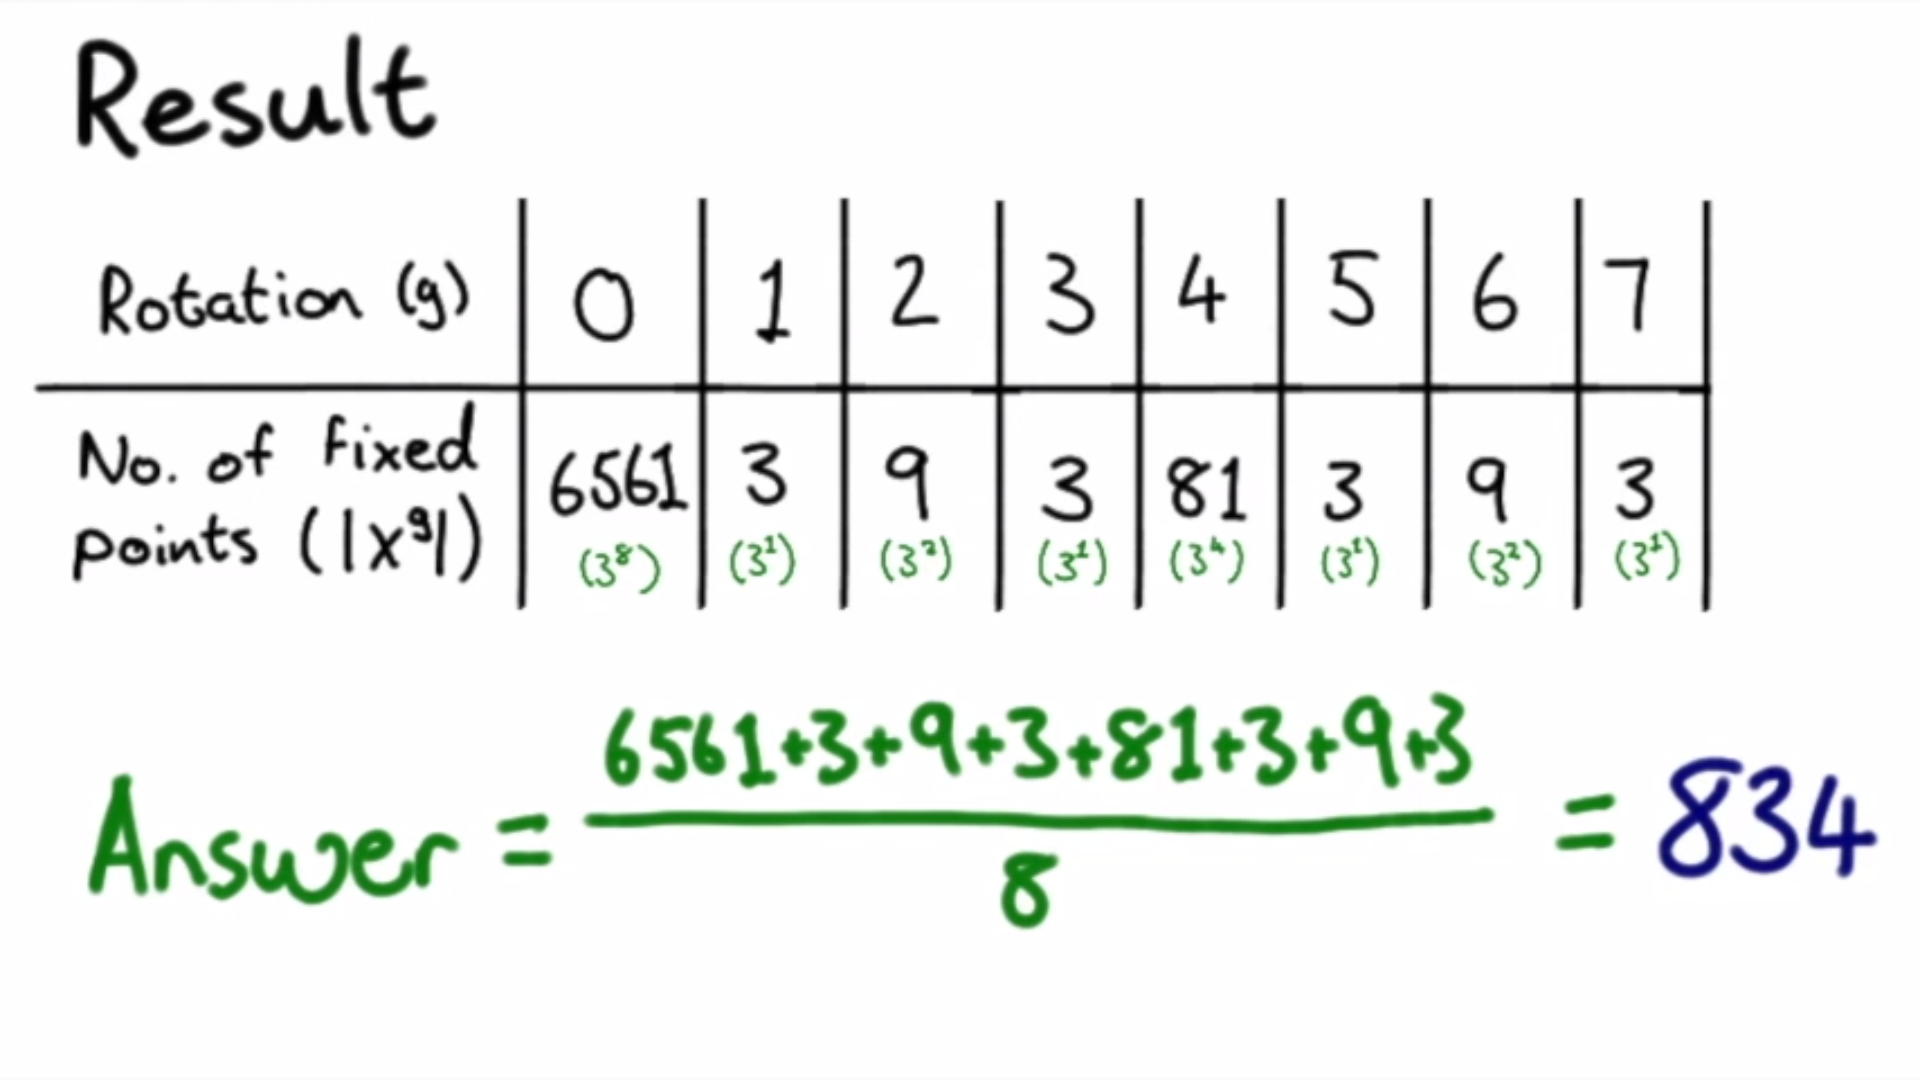 Result
Rotation (g) 0 1 2 3 4 5 6 7
No. of fixed points (|X^g|) 6561 3 9 3 81 3 9 3
(3^8) (3^1) (3^2) (3^1) (3^4) (3^1) (3^2) (3^1)
Answer = (6561+3+9+3+81+3+9+3)/8 = 834